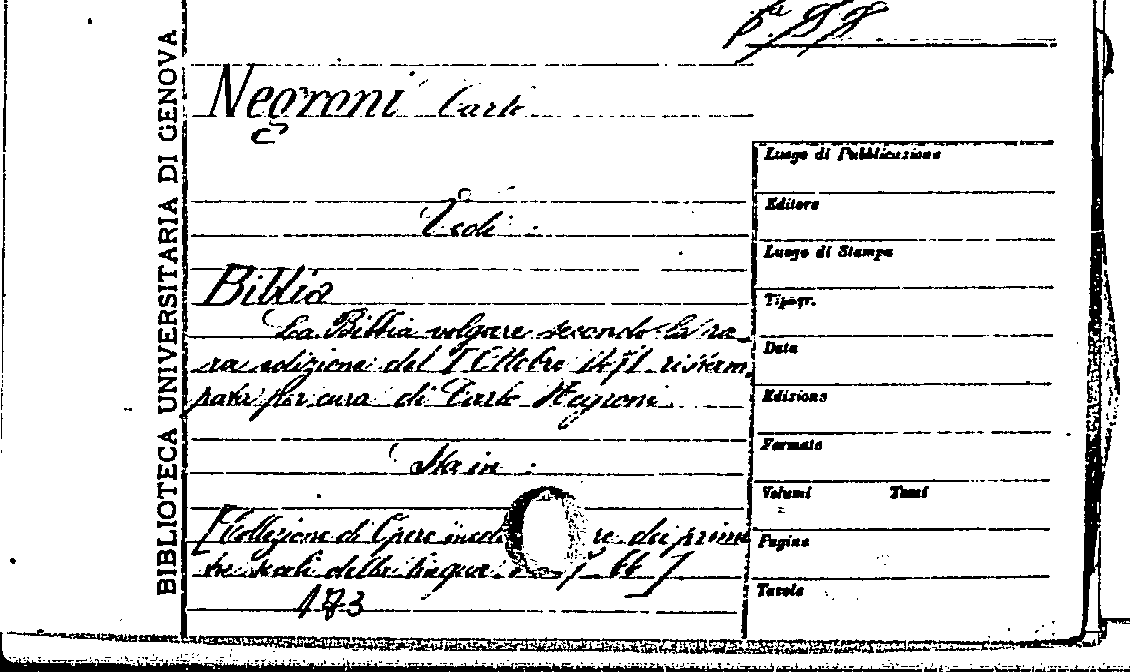 BIBLIOTECA UNIVERSITARIA DI GENOVA
Negroni Carlo
Vedi:
Biblia
La Bibbia volgare secondo la ra-
ra edizione del I Ottobre 1471 ristam-
pata per cura di Carlo Negroni.
Sta in:
[Collezione di Opere ined re dei primi
tre secoli della lingua 66]
173
Luogo di Pubblicazione
Editore
Luogo di Stampa
Tipogr.
Data
Edizione
Formato
Volumi Tomi
Pagine
Tavole